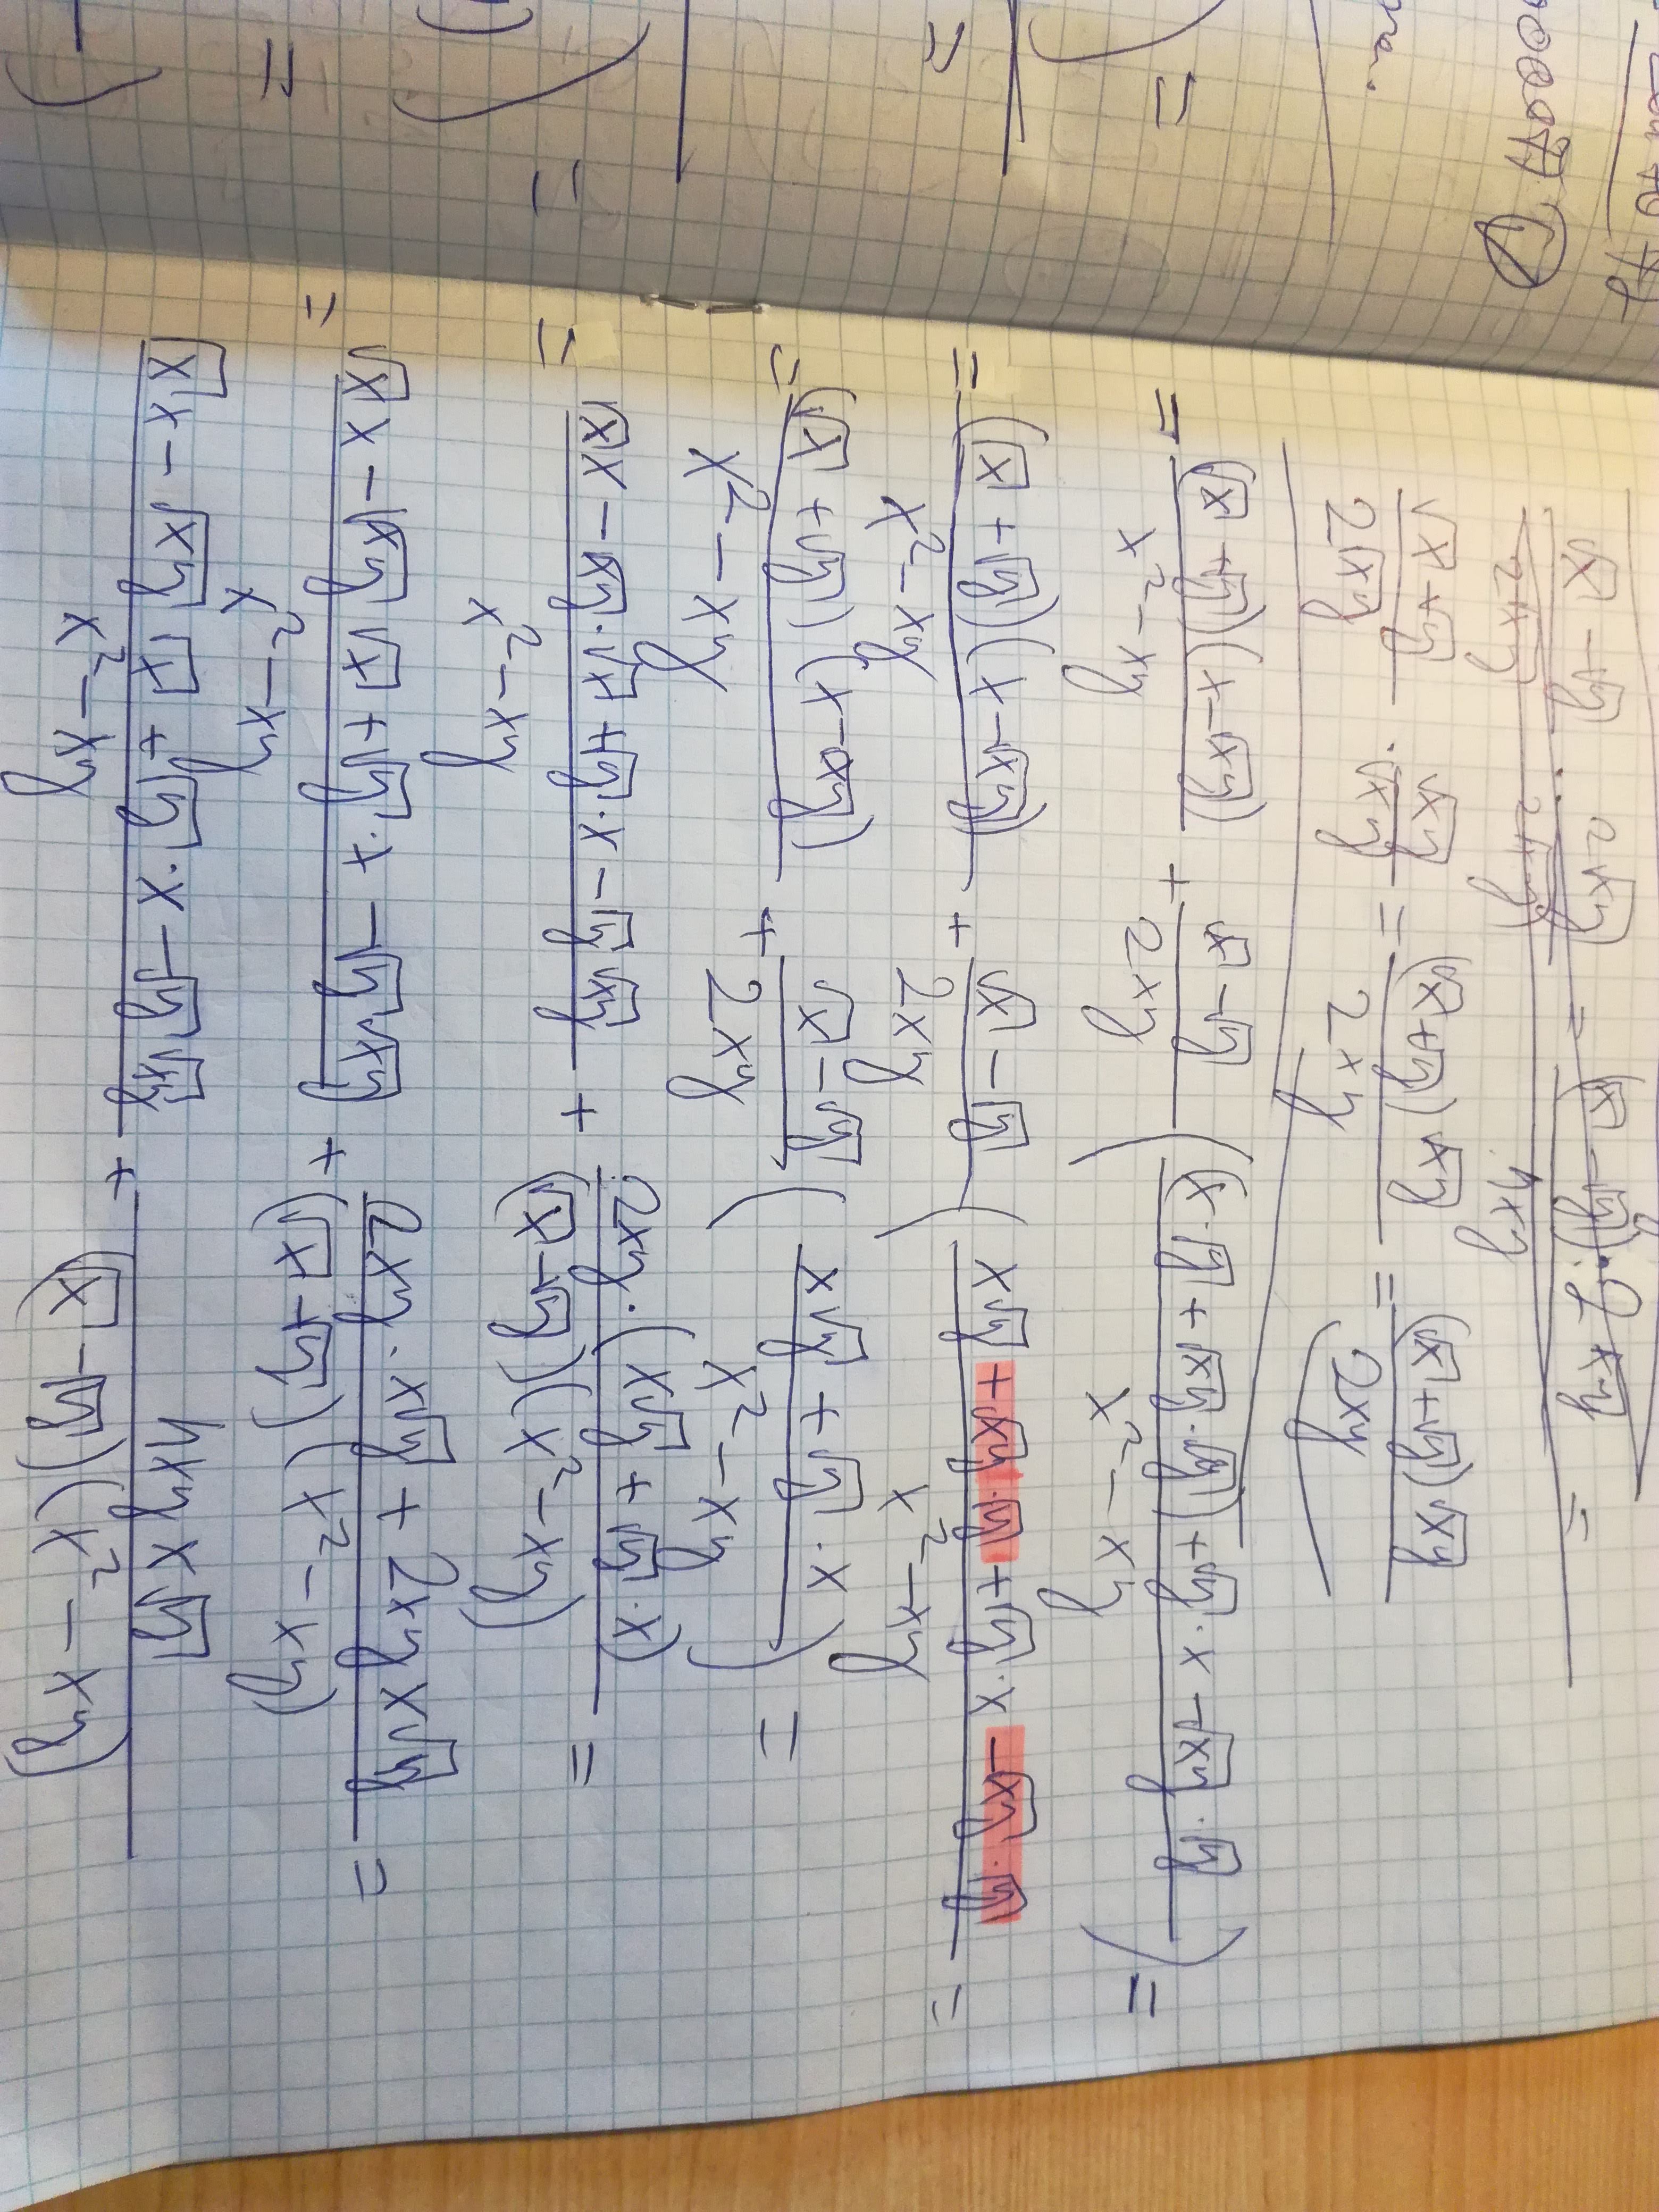 √x - √y / 2√xy · 2√xy / 2√xy = (√x - √y) · 2√xy / 4xy =
√x + √y / 2√xy · √xy / √xy = (√x + √y) √xy / 2xy = (√x + √y) √xy / 2xy
= (√x + √y)(x - √xy) / x² - xy + √x - √y / 2xy ) (x · √y + √xy · √y) + √y · x - √xy · √y / x² - xy ) =
= (√x + √y)(x - √xy) / x² - xy + √x - √y / 2xy ) x√y + √xy · √y + √y · x - √xy · √y / x² - xy =
= (√x + √y)(x - √xy) / x² - xy + √x - √y / 2xy ) x√y + √y · x / x² - xy ) =
= x√x - √xy · √x + √y · x - √y √xy / x² - xy + 2xy · (x√y + √y · x) / (x² - xy)(√x - √y) =
= x√x - √xy √x + √y · x - √y √xy / x² - xy + 2xy · x√y + 2xy x√y / (x² - xy)(√x - √y) =
x√x - √xy √x + √y · x - √y √xy / x² - xy + 4xy x√y / (x² - xy)(√x - √y)